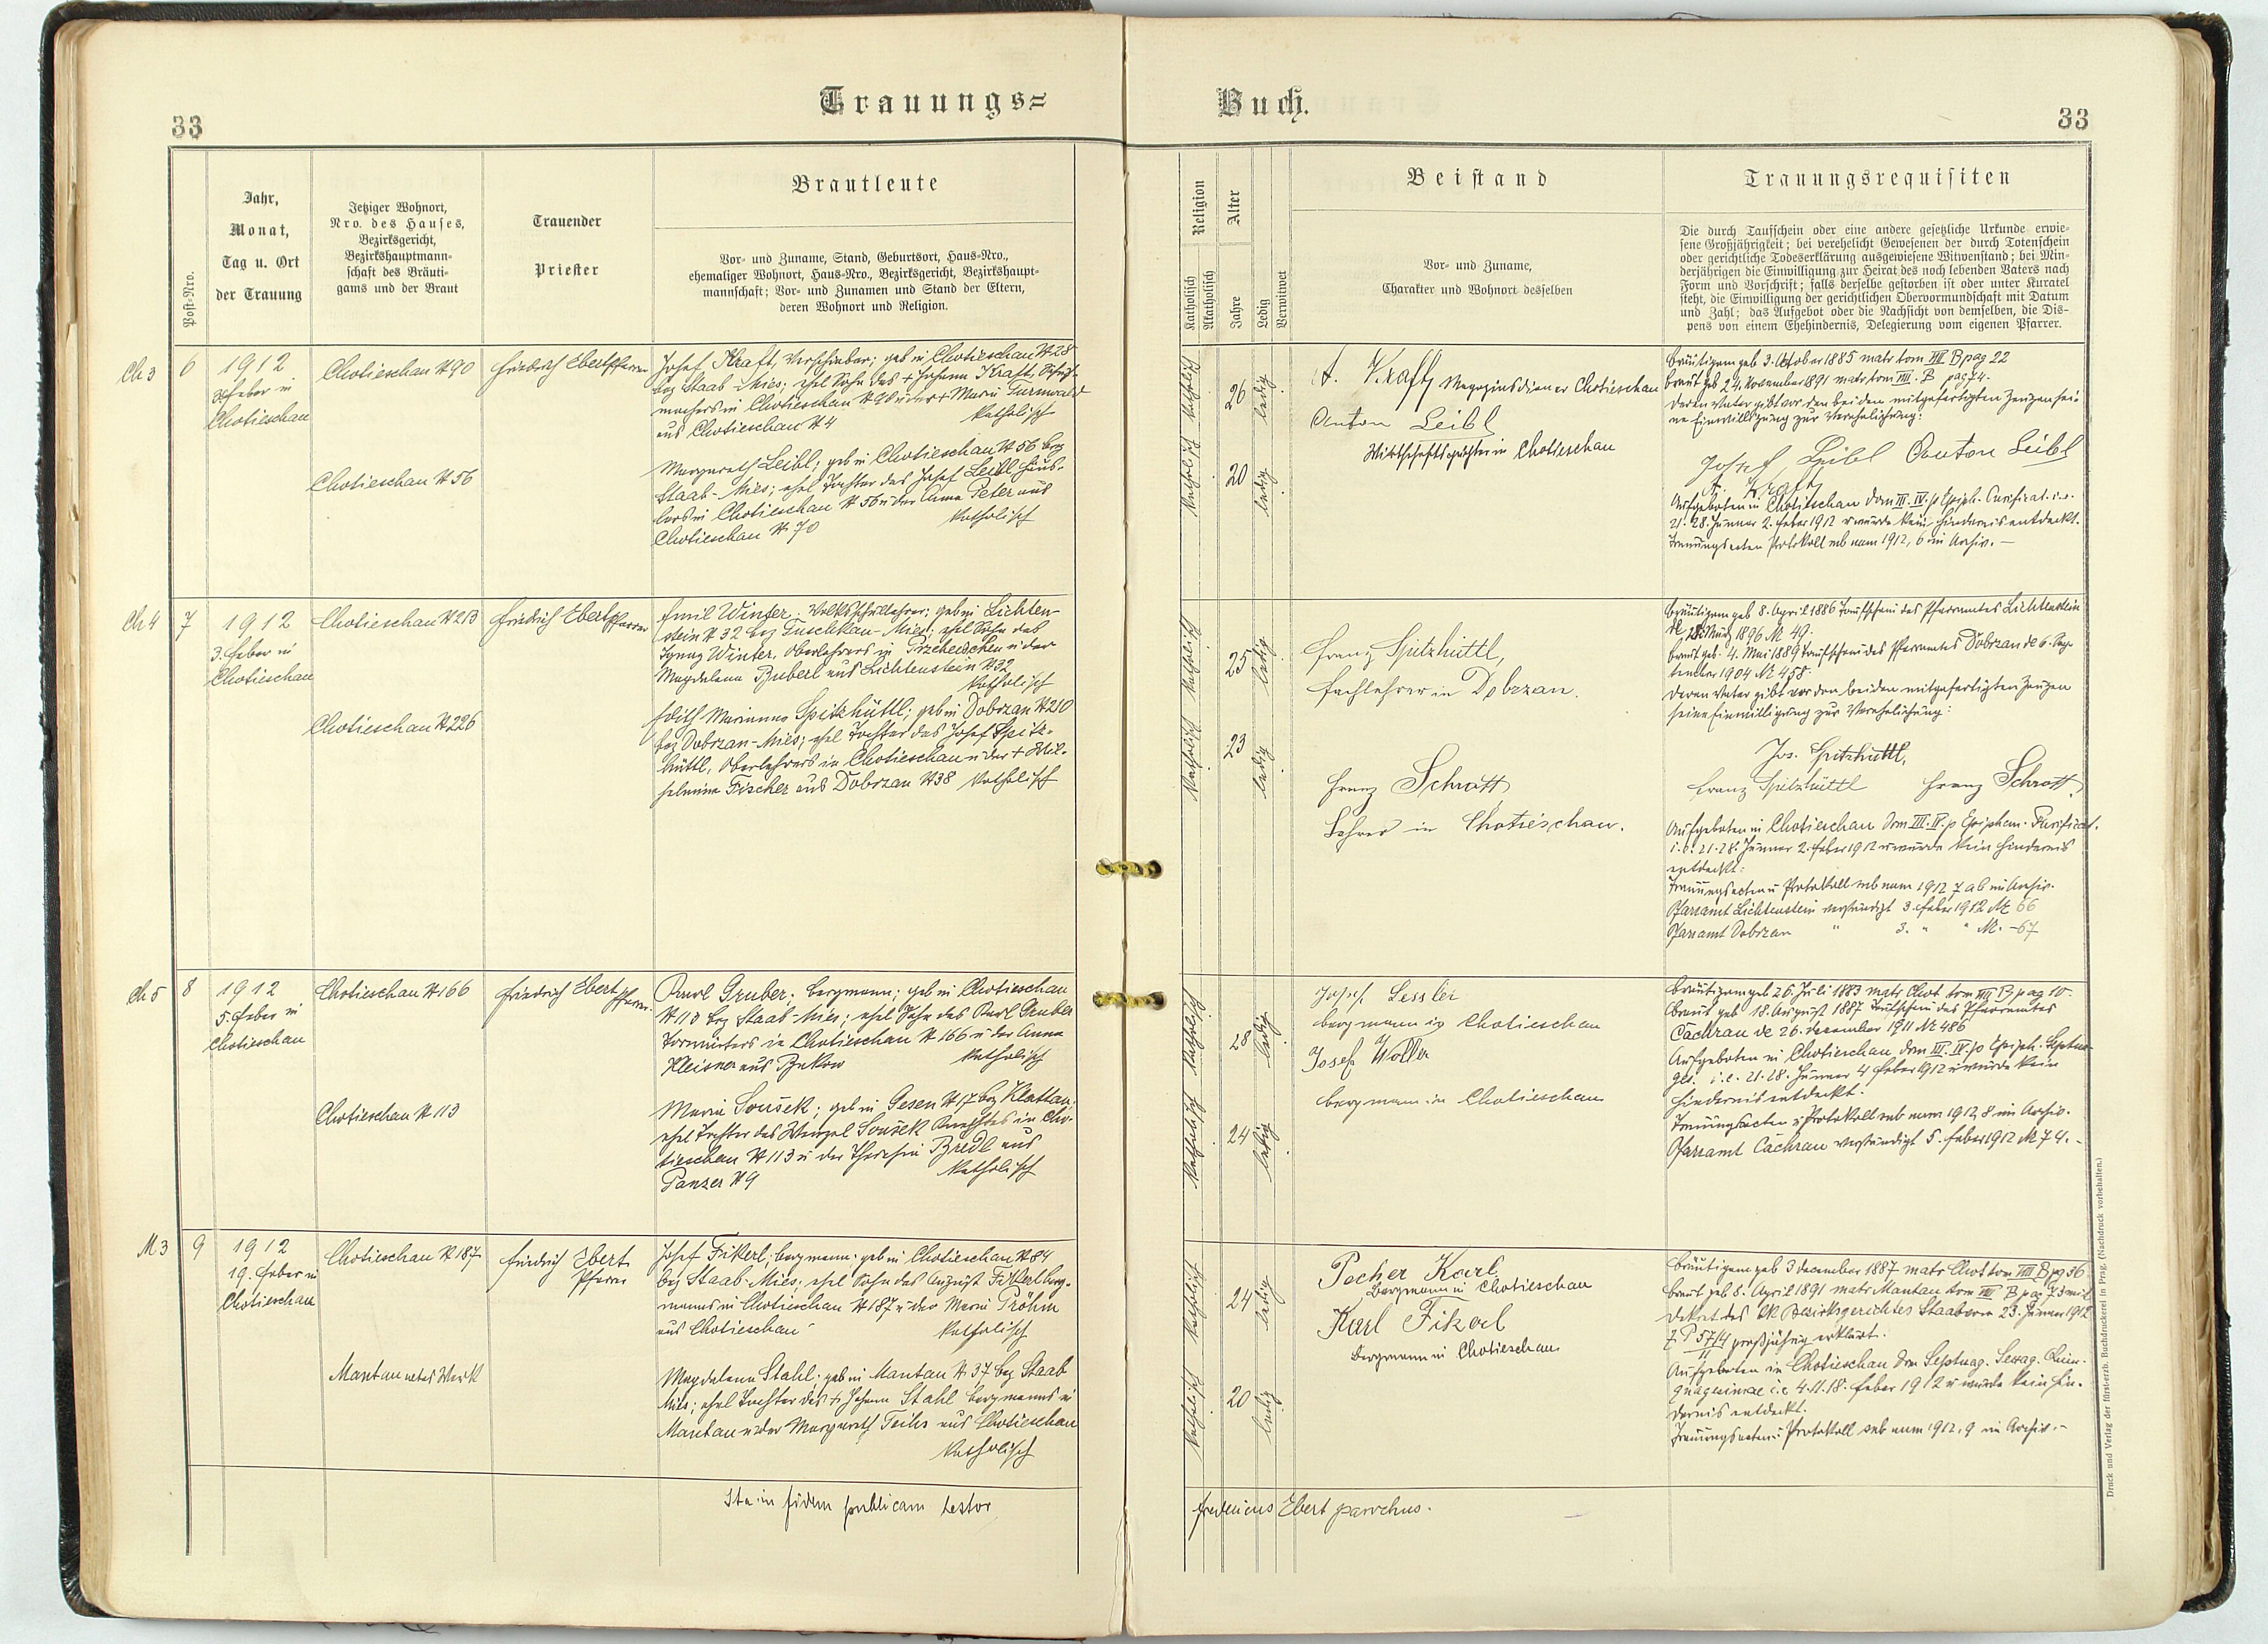 Trauungs=
Buch.
33
33
Post-Nro.
Jahr,
Monat,
Tag u. Ort
der Trauung
Jetziger Wohnort,
Nro. des Hauses,
Bezirksgericht,
Bezirkshauptmann-
schaft des Bräuti-
gams und der Braut
Trauender
Priester
Brautleute
Vor- und Zuname, Stand, Geburtsort, Haus-Nro.,
ehemaliger Wohnort, Haus-Nro., Bezirksgericht, Bezirkshaupt-
mannschaft; Vor- und Zunamen und Stand der Eltern,
deren Wohnort und Religion.
Religion
Katholisch
Akatholisch
Alter
Jahre
Ledig
Verwitwet
Beistand
Vor- und Zuname,
Charakter und Wohnort desselben
Trauungsrequisiten
Die durch Taufschein oder eine andere gesetzliche Urkunde erwie-
sene Großjährigkeit; bei verehelicht Gewesenen der durch Totenschein
oder gerichtliche Todeserklärung ausgewiesene Witwenstand; bei Min-
derjährigen die Einwilligung zur Heirat des noch lebenden Vaters nach
Form und Vorschrift; falls derselbe gestorben ist oder unter Kuratel
steht, die Einwilligung der gerichtlichen Obervormundschaft mit Datum
und Zahl; das Aufgebot oder die Nachsicht von demselben, die Dis-
pens von einem Ehehindernis, Delegierung vom eigenen Pfarrer.
Ch 3
6
1912
3. Feber in
Chotieschau
Chotieschau N 90
Chotieschau N 56
Friedrich Ebert Pfarrer
Josef Kraft, Verschieber; geb in Chotieschau N 28
bez Staab-Mies; ehel Sohn des + Johann Kraft, Schuh-
machers in Chotieschau N 90 u der + Maria Turnwald
aus Chotieschau N 4
Katholisch
Margareth Leibl; geb in Chotieschau N 56 bez
Staab-Mies; ehel Tochter des Josef Leibl Häus-
lers in Chotieschau N 56 u der Anna Peter aus
Chotieschau N 70
Katholisch
Katholisch
Katholisch
26
20
ledig
ledig
A. Kraft Magazinsdiener Chotieschau
Anton Leibl
Wirtschaftspächter in Chotieschau
Bräutigam geb 3. Oktober 1885 matr tom VIII B pag 22
Braut geb 24. November 1891 matr tom VIII. B pag 74.
Deren Vater gibt vor den beiden mitgefertigten Zeugen sei-
ne Einwilligung zur Verehelichung:
Josef Leibl Anton Leibl
A. Kraft
Aufgeboten in Chotieschau dom III. IV. p Epiph. Purificat. i. e.
21. 28. Jänner 2. Feber 1912 u wurde kein Hindernis entdeckt.
Trauungsacten Protokoll sub num 1912, 6 im Archiv. —
Ch 4
7
1912
3. Feber in
Chotieschau
Chotieschau N 213
Chotieschau N 226
Friedrich Ebert Pfarrer
Emil Winter, Volksschullehrer; geb in Lichten-
stein N 32 bez Tuschkau-Mies; ehel Sohn des
Ignaz Winter, Oberlehrers in Przeheischen u der
Magdalena Buberl aus Lichtenstein N 32
Katholisch
Edith Marianna Spitzhüttl; geb in Dobrzan N 210
bez Dobrzan-Mies; ehel Tochter des Josef Spitz-
hüttl, Oberlehrers in Chotieschau u der + Wil-
helmine Fischer aus Dobrzan N 38 Katholisch
Katholisch
Katholisch
25
23
ledig
ledig
Franz Spitzhüttl,
Fachlehrer in Dobrzan.
Franz Schrott
Lehrer in Chotieschau.
Bräutigam geb 8. April 1886 Taufschein des Pfarramtes Lichtenstein
de 28. März 1896 N 49.
Braut geb. 4. Mai 1889 Taufschein des Pfarramtes Dobrzan de 6. Sep-
tember 1904 N 458.
Deren Vater gibt vor den beiden mitgefertigten Zeugen
seine Einwilligung zur Verehelichung:
Jos. Spitzhüttl,
Franz Spitzhüttl Franz Schrott
Aufgeboten in Chotieschau dom III. IV. p Epiphan. Purificat.
i. e. 21. 28. Jänner 2. Feber 1912 u wurde kein Hindernis
entdeckt.
Trauungsacten u Protokoll sub num 1912 7 ab im Archiv.
Pfarramt Lichtenstein verständigt 3. Feber 1912 N 66
Pfarramt Dobrzan " 3. " " N. -67
Ch 5
8
1912
5. Feber in
Chotieschau
Chotieschau N 166
Chotieschau N 113
Friedrich Ebert Pfarrer
Karl Gruber; Bergmann; geb in Chotieschau
N 113 bez Staab-Mies; ehel Sohn des Karl Gruber
Torwärters in Chotieschau N 166 u der Anna
Kleisner aus Bukow
Katholisch
Maria Soušek; geb in Gesen N 17 bez Klattau,
ehel Tochter des Wenzel Soušek Knechtes in Cho-
tieschau N 113 u der Theresia Bredl aus
Panzer N 9
Katholisch
Katholisch
Katholisch
28
24
ledig
ledig
Josef Lessler
Bergmann in Chotieschau
Josef Woller
Bergmann in Chotieschau
Bräutigam geb 26. Juli 1883 matr Chot tom VIII B pag 10.
Braut geb 18. August 1887 Taufschein des Pfarramtes
Čachrau de 26. dezember 1911 N 486
Aufgeboten in Chotieschau dom III. IV. p Epiph. Septua-
ges. i. e. 21. 28. Jänner 4 Feber 1912 u wurde kein
Hindernis entdeckt.
Trauungsacten u Protokoll sub num 1912, 8 im Archiv.
Pfarramt Čachrau verständigt 5. Feber 1912 N 74. -
M 3
9
1912
19. Feber in
Chotieschau
Chotieschau N 187
Mantau
Friedrich Ebert
Pfarrer
Josef Fikerl; Bergmann; geb in Chotieschau N 84
bez Staab-Mies; ehel Sohn des August Fikerl Berg-
manns in Chotieschau N 187 u der Maria Pröhm
aus Chotieschau
Katholisch
Magdalena Stahl; geb in Mantau N 37 bez Staab
Mies; ehel Tochter des + Johann Stahl Bergmanns in
Mantau u der Margareth Teihs aus Chotieschau
Katholisch
Katholisch
Katholisch
24
20
ledig
ledig
Pecher Karl
Bergmann in Chotieschau
Karl Fikerl
Bergmann in Chotieschau
Bräutigam geb 3 dezember 1887 matr Chot tom VIII B pg 36
Braut geb 8. April 1891 matr Mantau tom VIII B pag 73 mit
Dekret des kk Bezirksgerichtes Staab vom 23. Jänner 1912
Z. P 57/4 großjährig erklärt.
II
Aufgeboten in Chotieschau dom Septuag. Sexag. Quin-
quagesimae i. e 4. 11. 18. Feber 1912 u wurde kein Hin-
dernis entdeckt.
Trauungsacten u Protokoll sub num 1912, 9 im Archiv. -
Ita in fidem publicam testor
Fredericus Ebert parochus.
Druck und Verlag der fürst-erzb. Buchdruckerei in Prag. (Nachdruck vorbehalten.)